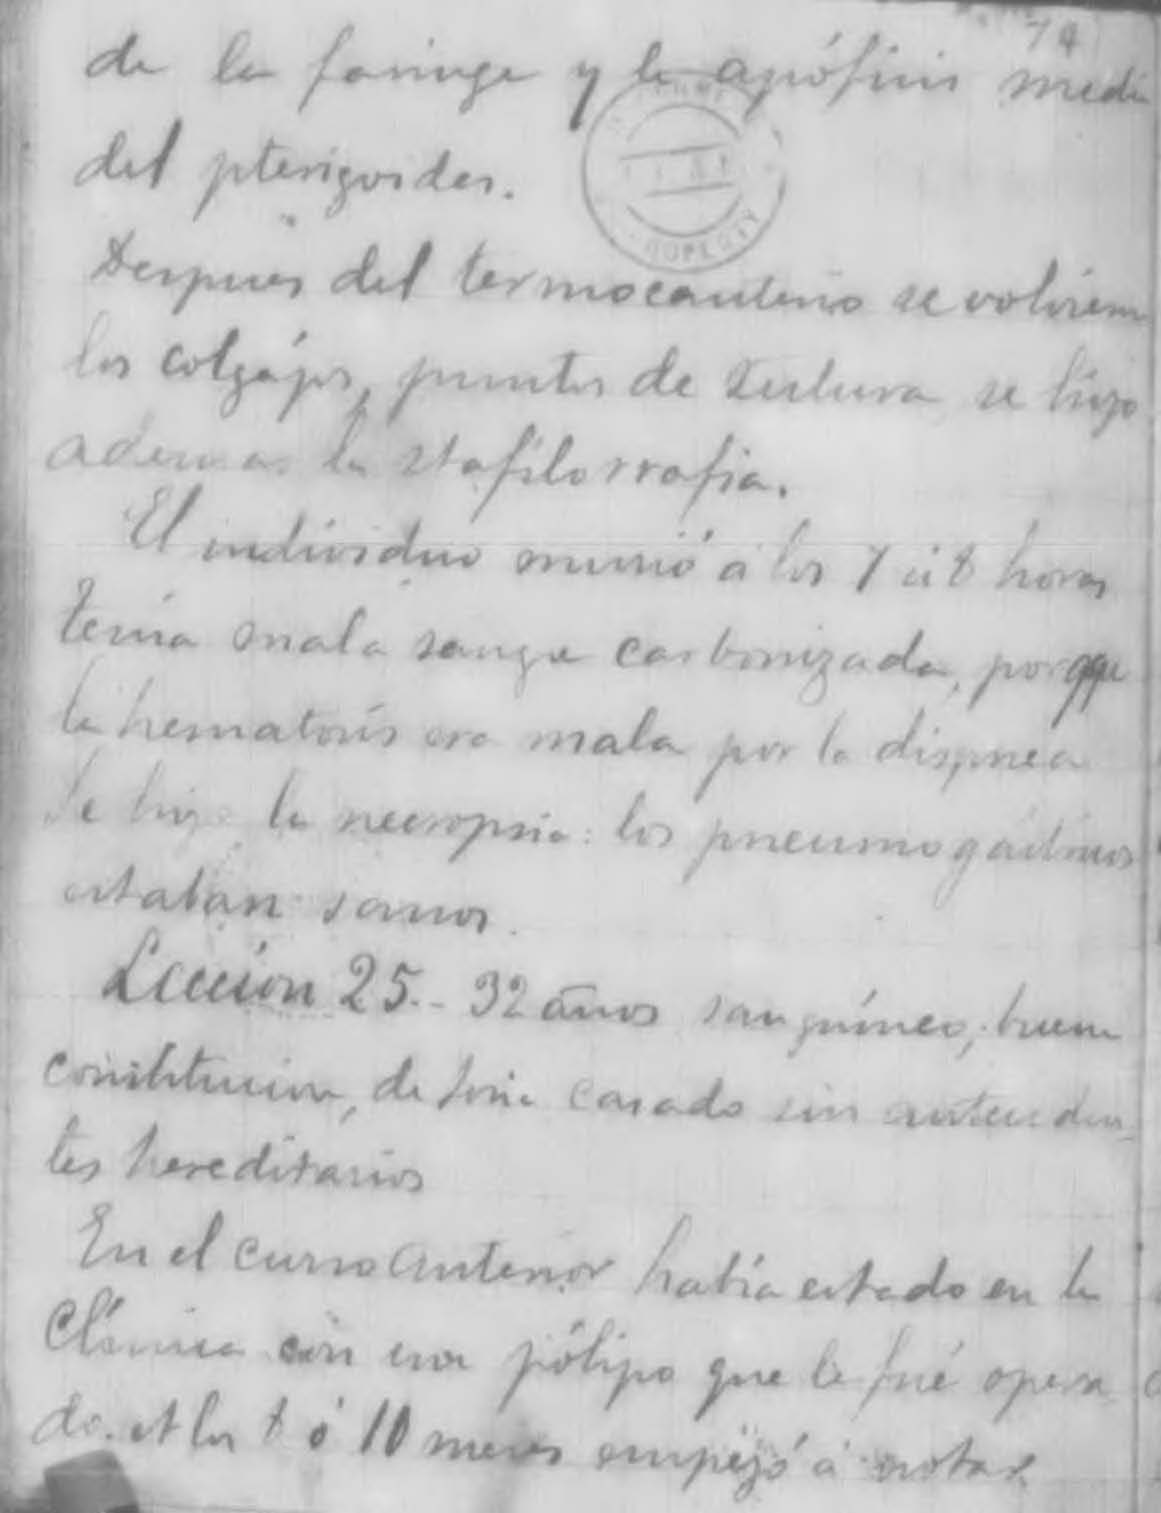 74
de la faringe y la apófisis media
del pterigoides.
Despues del termocauterio se volvieron
los colgájos, puntos de sutura se hizo
ademas la stafilorrafia.
El individuo murió á los 7 ú 8 horas
tenia mala sangre carbonizada, porque
la hematosis era mala por la dispnea
Se hizo la necropsia: los pneumogástricos
estaban sanos.
Leccion 25.- 32 años sanguíneo, buena
constitucion, de Soria casado sin anteceden-
tes hereditarios
En el curso anterior habia estado en la
Clínica con un pólipo que le fué opera
do. A los 8 ó 10 meses empezó á notar